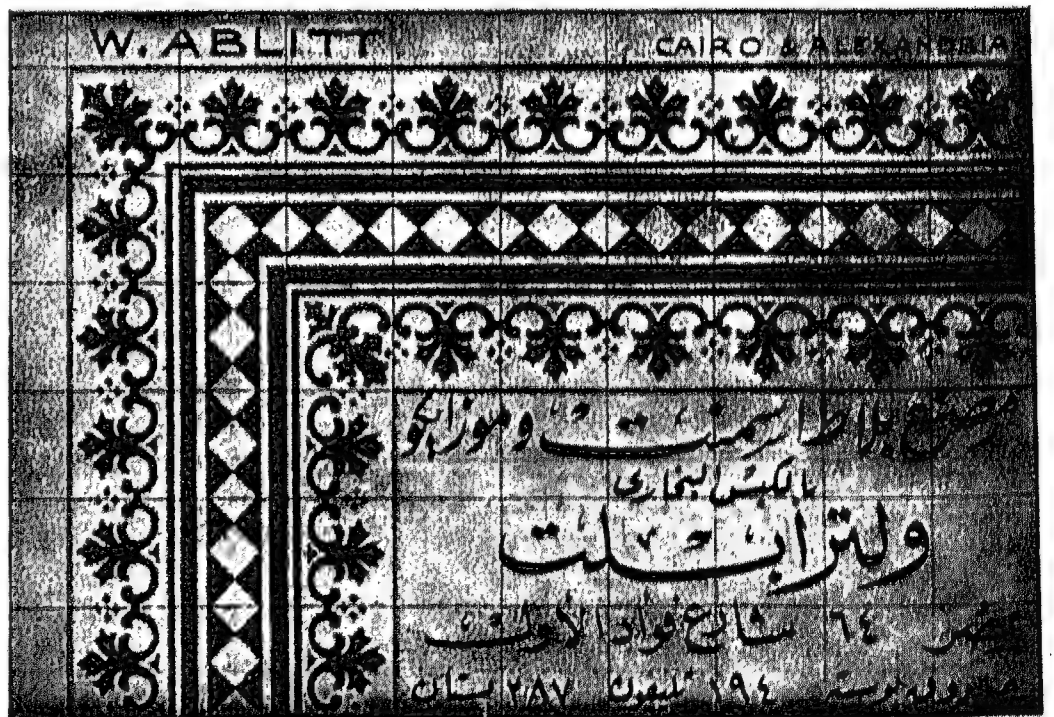 W. ABLITT CAIRO & ALEXANDRIA
مصنع بلاط اسمنت وموزايكو
بالكبس البخاري
ولتر ابلت
بمصر ٦٤ شارع فواد الاول
صندوق بوسته ١٩٤ تليفون ٢٨٧ بستان